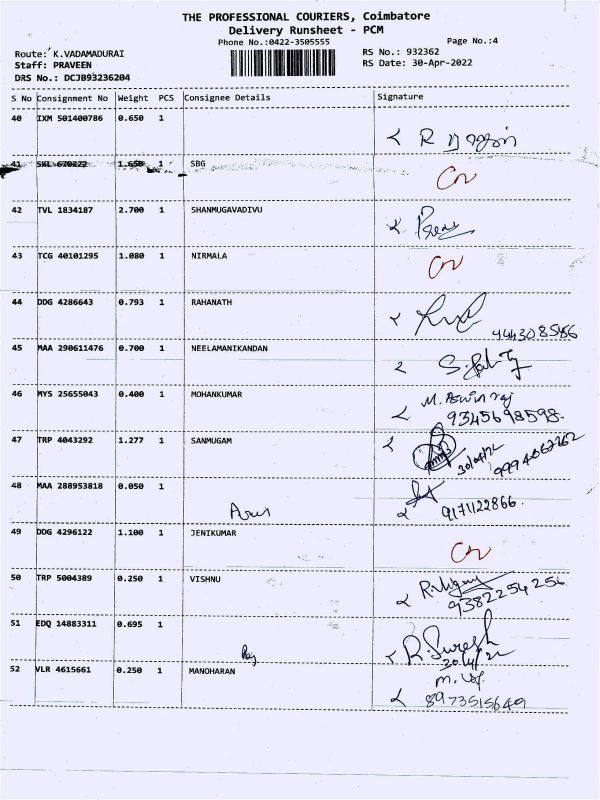 THE PROFESSIONAL COURIERS, Coimbatore
Delivery Runsheet - PCM
Phone No.:0422-3505555
Page No.:4
Route: K.VADAMADURAI
RS No.: 932362
Staff: PRAVEEN
RS Date: 30-Apr-2022
DRS No.: DCJB93236204
S No Consignment No Weight PCS Consignee Details Signature
40 IXM 501400786 0.650 1
41 SKL 670272 1.650 1 SBG
42 TVL 1834187 2.700 1 SHANMUGAVADIVU
43 TCG 40101295 1.080 1 NIRMALA
44 DDG 4286643 0.793 1 RAHANATH
45 MAA 290611476 0.700 1 NEELAMANIKANDAN
46 MYS 25655043 0.400 1 MOHANKUMAR
M. Aswin raj
9345698598.
47 TRP 4043292 1.277 1 SANMUGAM
48 MAA 288953818 0.050 1
Arun 9171122866.
49 DDG 4296122 1.100 1 JENIKUMAR
50 TRP 5004389 0.250 1 VISHNU
9382254256
51 EDQ 14883311 0.695 1
Raj R. Suresh
30/4/22
52 VLR 4615661 0.250 1 MANOHARAN
8973515649